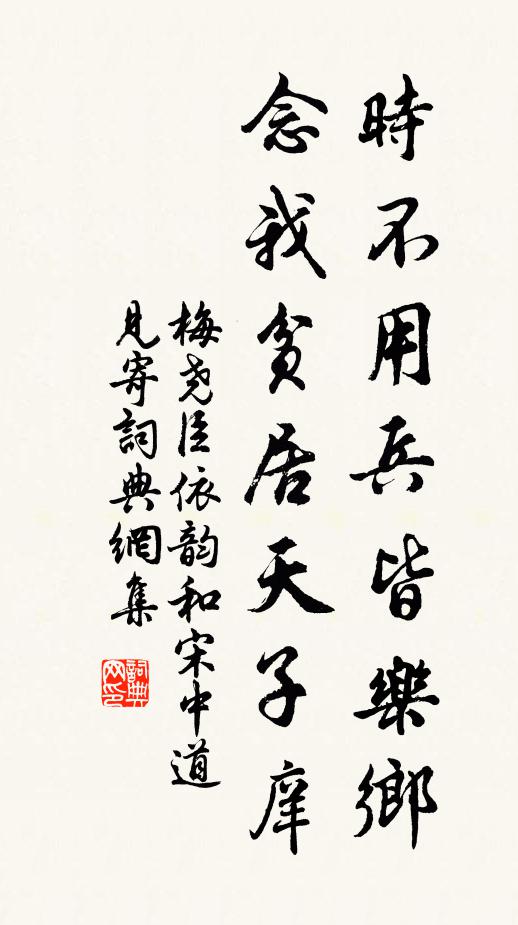 時不用兵皆樂鄉
念我貧居天子庠
梅堯臣依韵和宋中道
見寄詞典網集
詞典
网印